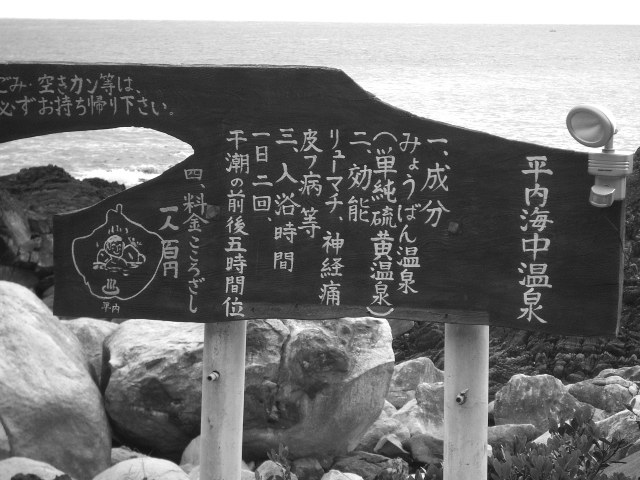 平内海中温泉
一、成分
みょうばん温泉
（単純硫黄温泉）
二、効能
リューマチ、神経痛
皮フ病 等
三、入浴時間
一日二回、
干潮の前後五時間位
四、料金こころざし
一人 百円
平内
ごみ・空きカン等は、
必ずお持ち帰り下さい。